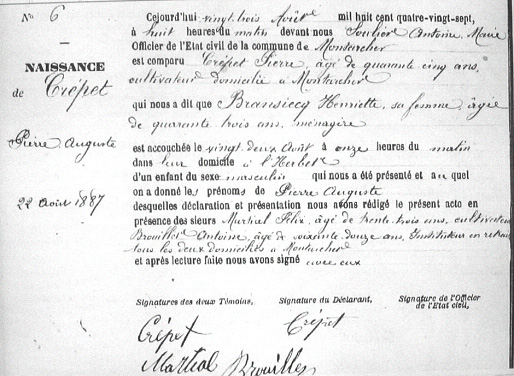 N° 6
NAISSANCE
de Crépet
Pierre Auguste
22 Août 1887
Cejourd'hui vingt trois Août mil huit cent quatre-vingt-sept,
à huit heures du matin devant nous Soulier Antoine Marie
Officier de l'Etat civil de la commune de Montarcher
est comparu Crépet Pierre, âgé de quarante cinq ans,
cultivateur domicilié à Montarcher
qui nous a dit que Henriette, sa femme, âgée
de quarante trois ans, ménagère
est accouchée le vingt deux Août à onze heures du matin
dans leur domicile à
d'un enfant du sexe masculin qui nous a été présenté et au quel
on a donné les prénoms de Pierre Auguste
desquelles déclaration et présentation nous avons rédigé le présent acte en
présence des sieurs Martial Félix, âgé de trente trois ans, cultivateur
Antoine, âgé de soixante douze ans, Instituteur en retraite
tous les deux domiciliés à Montarcher
et après lecture faite nous avons signé avec eux
Signatures des deux Témoins, Signature du Déclarant, Signature de l'Officier
de l'Etat civil,
Crépet Crépet
Martial